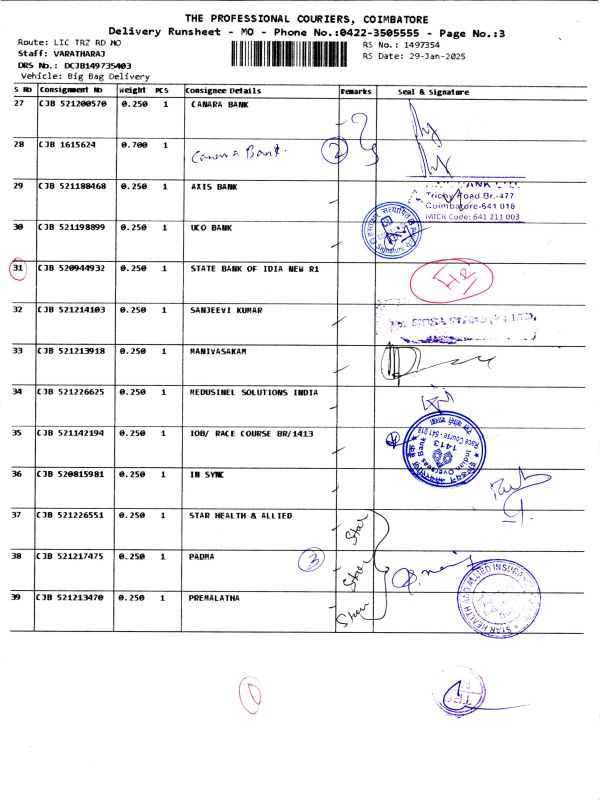 THE PROFESSIONAL COURIERS, COIMBATORE
Delivery Runsheet - MO - Phone No.:0422-3505555 - Page No.:3
Route: LIC TRZ RD MO
RS No.: 1497354
Staff: VARATHARAJ
RS Date: 29-Jan-2025
DRS No.: DCJB149735403
Vehicle: Big Bag Delivery
S No Consignment No Weight PCS Consignee Details Remarks Seal & Signature
27 CJB 521200570 0.250 1 CANARA BANK
28 CJB 1615624 0.700 1 Canara Bank. 2
29 CJB 521188468 0.250 1 AXIS BANK
Trichy Road Br.-477
Coimbatore-641 018
MICR Code: 641 211 003
30 CJB 521198899 0.250 1 UCO BANK
31 CJB 520944932 0.250 1 STATE BANK OF IDIA NEW R1
32 CJB 521214103 0.250 1 SANJEEVI KUMAR
33 CJB 521213918 0.250 1 MANIVASAKAM
34 CJB 521226625 0.250 1 MEDUSINEL SOLUTIONS INDIA
35 CJB 521142194 0.250 1 IOB/ RACE COURSE BR/1413
Indian Overseas Bank
Race Course - 641 018
1413
36 CJB 520815981 0.250 1 IN SYNC
37 CJB 521226551 0.250 1 STAR HEALTH & ALLIED Star
38 CJB 521217475 0.250 1 PADMA 3 Star
39 CJB 521213470 0.250 1 PREMALATHA Star